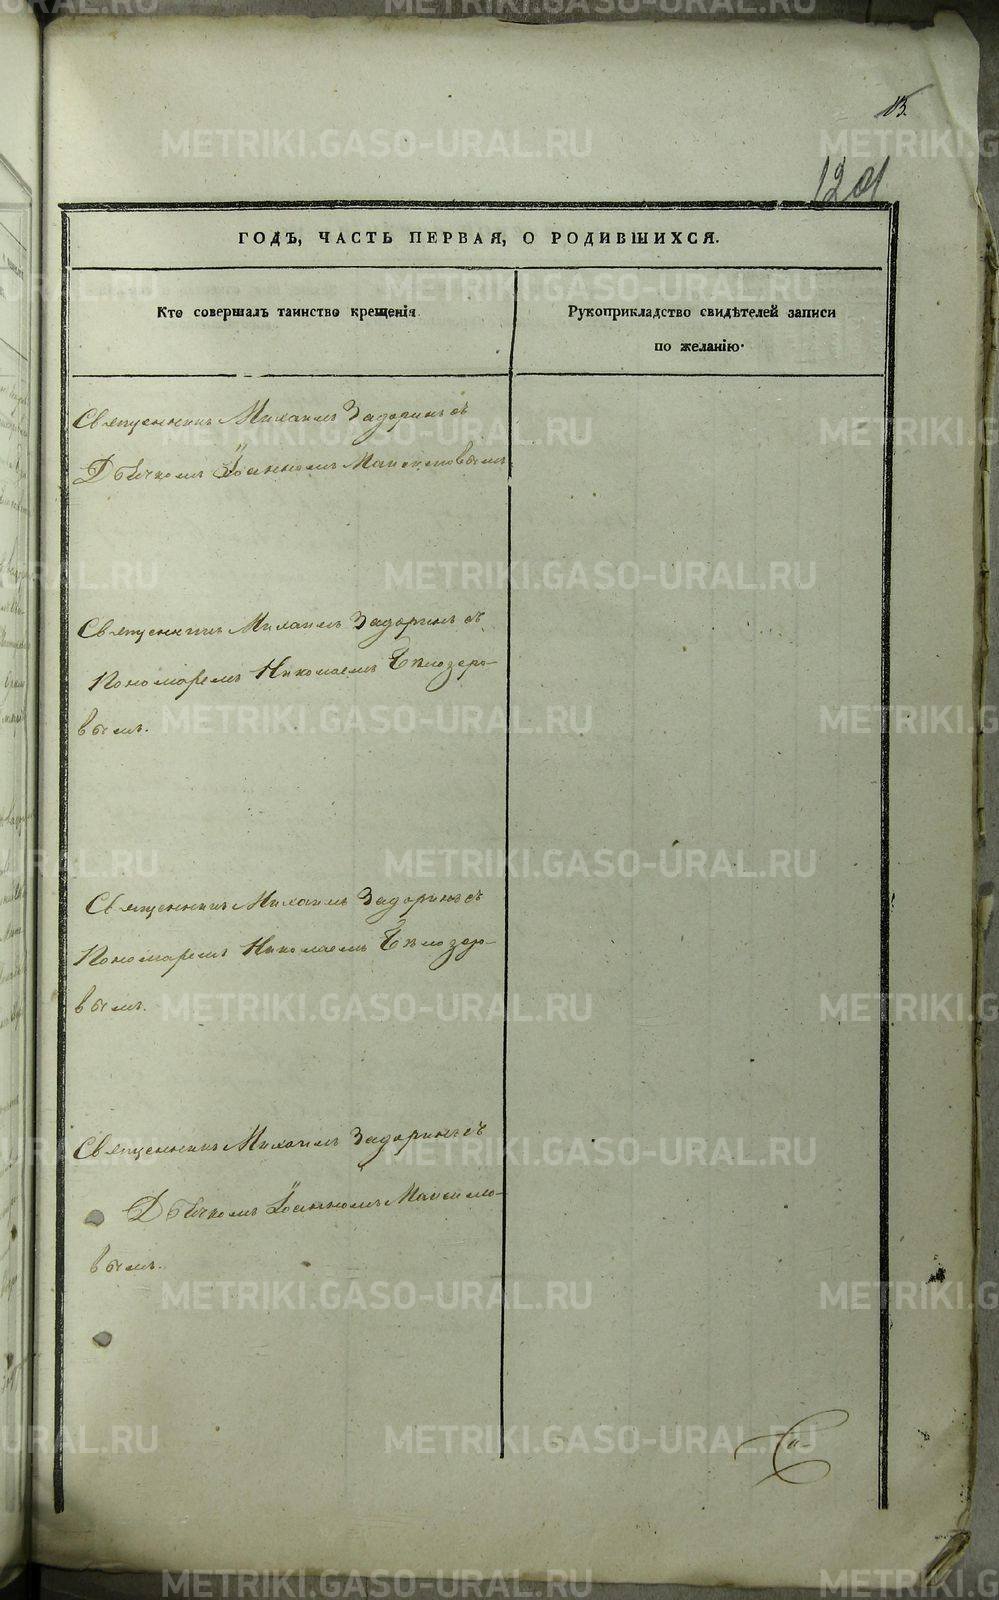 13.
120
ГОДЪ, ЧАСТЬ ПЕРВАЯ, О РОДИВШИХСЯ.
Кто совершалъ таинство крещенія
Рукоприкладство свидѣтелей записи
по желанію.
Священникъ Михаилъ Задоринъ съ
Дьячкомъ Іоанномъ
Священникъ Михаилъ Задоринъ съ
Пономаремъ Николаемъ Бѣлозеро-
вымъ.
Священникъ Михаилъ Задоринъ съ
Пономаремъ Николаемъ Бѣлозеро-
вымъ.
Священникъ Михаилъ Задоринъ съ
Дьячкомъ Іоанномъ
вымъ.
METRIKI.GASO-URAL.RU